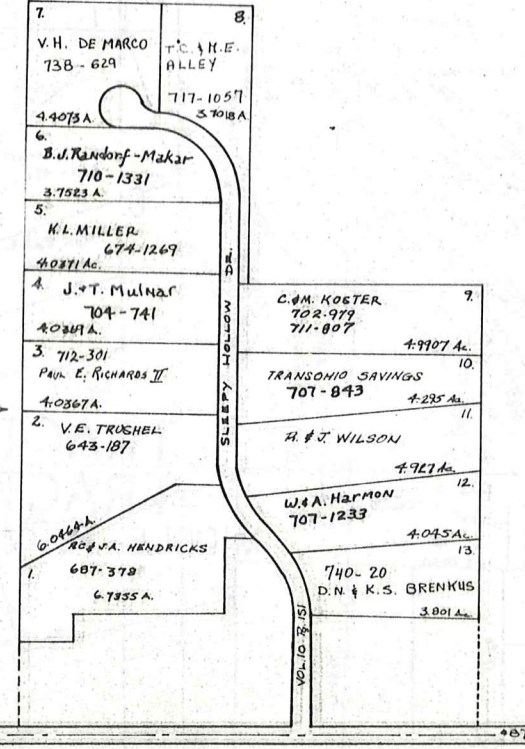 7.
V.H. DE MARCO
738-629
4.4073 A.
8.
T.C. & H.E.
ALLEY
717-1057
3.7018 A
6.
B.J. Randorf-Makar
710-1331
3.7523 A.
5.
K.L. MILLER
674-1269
4.0371 Ac.
4.
J. & T. Mulnar
704-741
4.0369 A.
3. 712-301
PAUL E. RICHARDS II
4.0367 A.
2.
V.E. TRUSHEL
643-187
6.0464 A.
1.
R.C. & J.A. HENDRICKS
687-378
6.7355 A.
SLEEPY HOLLOW DR.
9.
C. & M. KOSTER
702-979
711-807
4.9907 Ac.
10.
TRANSOHIO SAVINGS
707-843
4.295 Ac.
11.
& J. WILSON
4.927 Ac.
12.
W. & A. Harmon
707-1233
4.045 Ac.
13.
740-20
D.N. & K.S. BRENKUS
3.801 Ac.
VOL. 10 P. 151